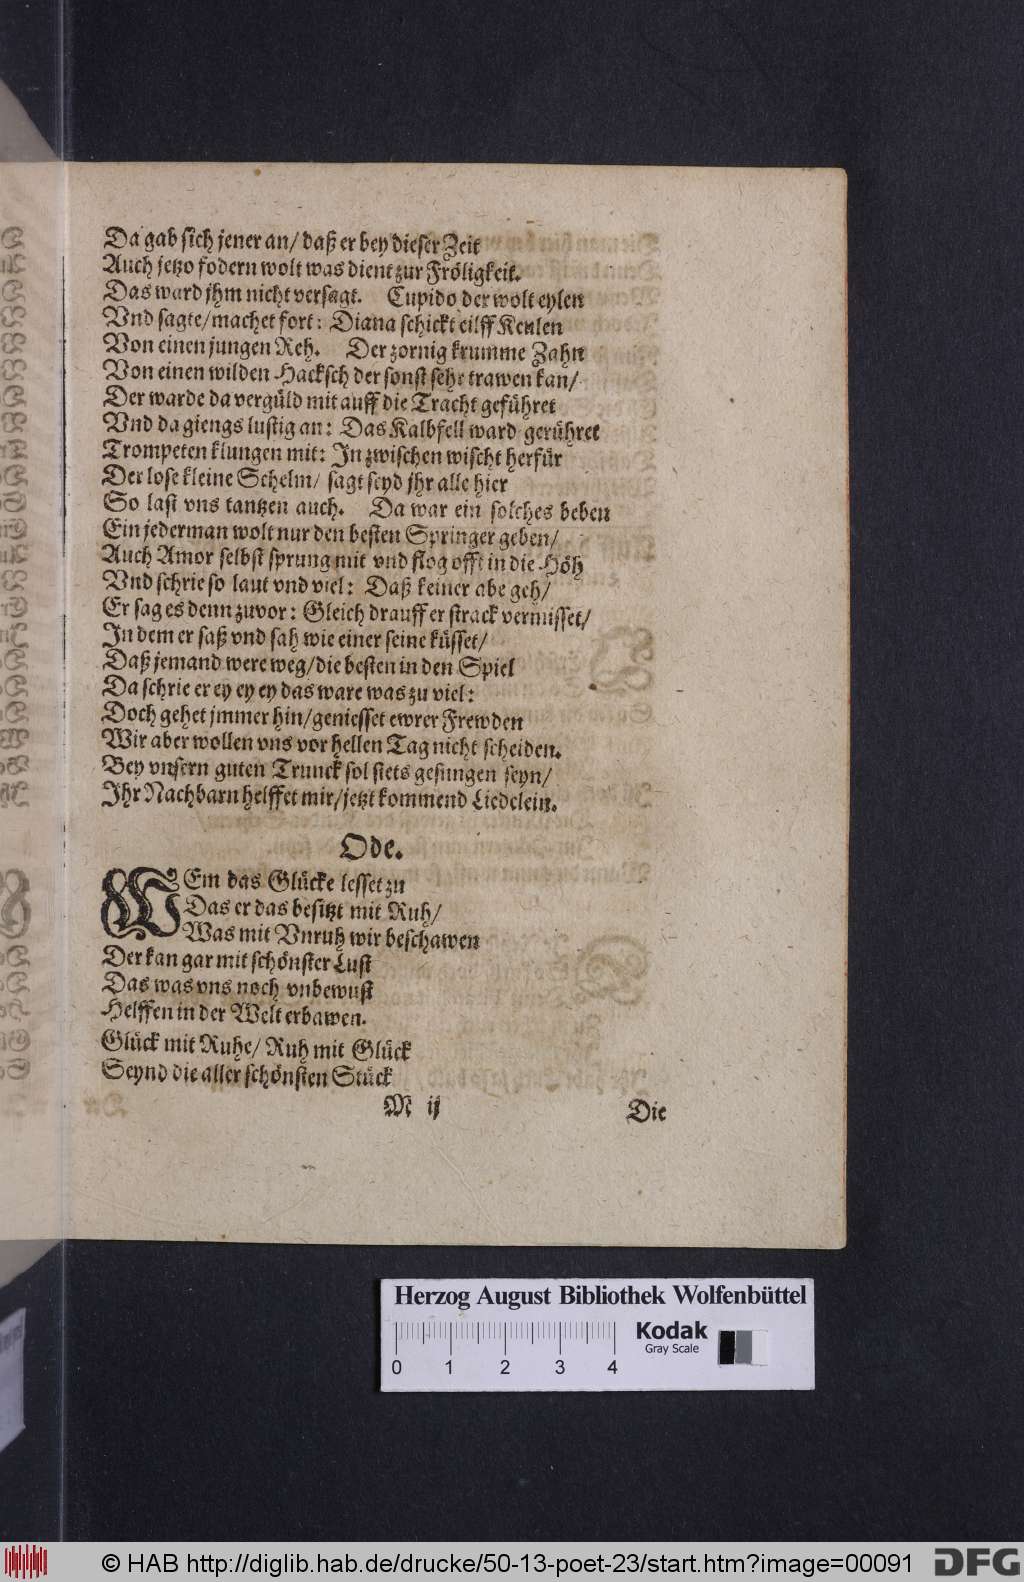 Da gab sich jener an/ daß er bey dieser Zeit
Auch jetzo fodern wolt was dient zur Fröligkeit.
Das ward jhm nicht versagt. Cupido der wolt eylen
Vnd sagte/ machet fort: Diana schickt eilff Keulen
Von einen jungen Reh. Der zornig krumme Zahn
Von einen wilden Hacksch der sonst sehr trawen kan/
Der warde da vergüld mit auff die Tracht geführet
Vnd da giengs lustig an: Das Kalbfell ward gerühret
Trompeten klungen mit: In zwischen wischt herfür
Der lose kleine Schelm/ sagt seyd jhr alle hier
So last vns tantzen auch. Da war ein solches beben
Ein jederman wolt nur den besten Springer geben/
Auch Amor selbst sprung mit vnd flog offt in die Höh
Vnd schrie so laut vnd viel: Daß keiner abe geh/
Er sag es denn zuvor: Gleich drauff er strack vermisset/
In dem er saß vnd sah wie einer seine küsset/
Daß jemand were weg/ die besten in den Spiel
Da schrie er ey ey ey das ware was zu viel:
Doch gehet jmmer hin/ geniesset ewrer Frewden
Wir aber wollen vns vor hellen Tag nicht scheiden.
Bey vnsern guten Trunck sol stets gesungen seyn/
Ihr Nachbarn helffet mir/ jetzt kommend Liedelein.
Ode.
WEm das Glücke lesset zu
Das er das besitzt mit Ruh/
Was mit Vnruh wir beschawen
Der kan gar mit schönster Lust
Das was vns noch vnbewust
Helffen in der Welt erbawen.
Glück mit Ruhe/ Ruh mit Glück
Seynd die aller schönsten Stück
M ij Die
Herzog August Bibliothek Wolfenbüttel
Kodak
Gray Scale
0 1 2 3 4
© HAB http://diglib.hab.de/drucke/50-13-poet-23/start.htm?image=00091
DFG